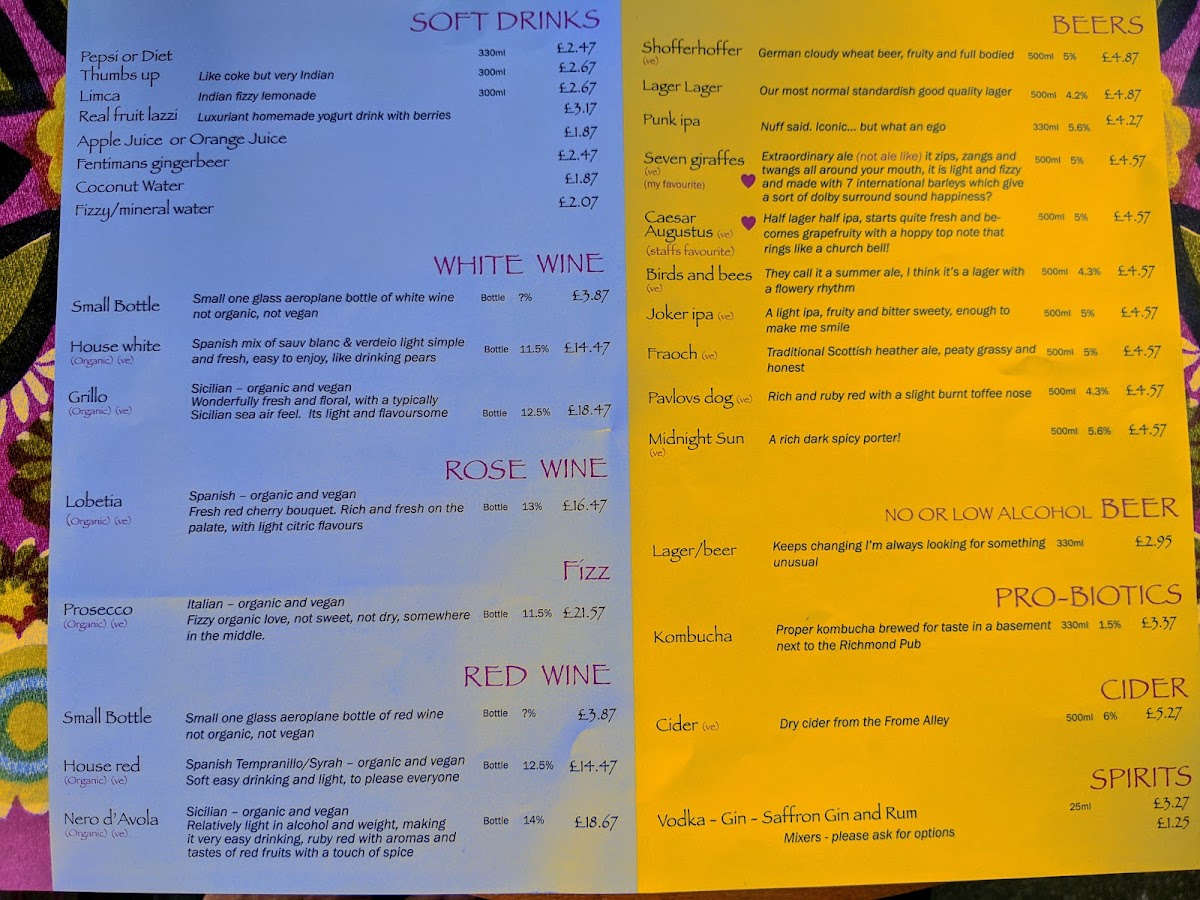 SOFT DRINKS
Pepsi or Diet 330ml £2.47
Thumbs up Like coke but very Indian 300ml £2.67
Limca Indian fizzy lemonade 300ml £2.67
Real fruit lazzi Luxuriant homemade yogurt drink with berries £3.17
Apple Juice or Orange Juice £1.87
Fentimans gingerbeer £2.47
Coconut Water £1.87
Fizzy/mineral water £2.07
WHITE WINE
Small Bottle Small one glass aeroplane bottle of white wine Bottle ?% £3.87
not organic, not vegan
House white Spanish mix of sauv blanc & verdeio light simple Bottle 11.5% £14.47
(Organic) (ve) and fresh, easy to enjoy, like drinking pears
Sicilian – organic and vegan
Grillo Wonderfully fresh and floral, with a typically
(Organic) (ve) Sicilian sea air feel. Its light and flavoursome Bottle 12.5% £18.47
ROSE WINE
Lobetia Spanish – organic and vegan
(Organic) (ve) Fresh red cherry bouquet. Rich and fresh on the Bottle 13% £16.47
palate, with light citric flavours
Fizz
Prosecco Italian – organic and vegan
(Organic) (ve) Fizzy organic love, not sweet, not dry, somewhere Bottle 11.5% £21.57
in the middle.
RED WINE
Small Bottle Small one glass aeroplane bottle of red wine Bottle ?% £3.87
not organic, not vegan
House red Spanish Tempranillo/Syrah – organic and vegan Bottle 12.5% £14.47
(Organic) (ve) Soft easy drinking and light, to please everyone
Nero d'Avola Sicilian – organic and vegan Bottle 14% £18.67
(Organic) (ve) Relatively light in alcohol and weight, making
it very easy drinking, ruby red with aromas and
tastes of red fruits with a touch of spice
BEERS
Shofferhoffer German cloudy wheat beer, fruity and full bodied 500ml 5% £4.87
(ve)
Lager Lager Our most normal standardish good quality lager 500ml 4.2% £4.87
Punk ipa Nuff said. Iconic... but what an ego 330ml 5.6% £4.27
Seven giraffes Extraordinary ale (not ale like) it zips, zangs and 500ml 5% £4.57
(ve) twangs all around your mouth, it is light and fizzy
(my favourite) and made with 7 international barleys which give
a sort of dolby surround sound happiness?
Caesar Half lager half ipa, starts quite fresh and be- 500ml 5% £4.57
Augustus (ve) comes grapefruity with a hoppy top note that
(staffs favourite) rings like a church bell!
Birds and bees They call it a summer ale, I think it's a lager with 500ml 4.3% £4.57
(ve) a flowery rhythm
Joker ipa (ve) A light ipa, fruity and bitter sweety, enough to 500ml 5% £4.57
make me smile
Fraoch (ve) Traditional Scottish heather ale, peaty grassy and 500ml 5% £4.57
honest
Pavlovs dog (ve) Rich and ruby red with a slight burnt toffee nose 500ml 4.3% £4.57
Midnight Sun A rich dark spicy porter! 500ml 5.6% £4.57
(ve)
NO OR LOW ALCOHOL BEER
Lager/beer Keeps changing I'm always looking for something 330ml £2.95
unusual
PRO-BIOTICS
Kombucha Proper kombucha brewed for taste in a basement 330ml 1.5% £3.37
next to the Richmond Pub
CIDER
Cider (ve) Dry cider from the Frome Alley 500ml 6% £5.27
SPIRITS
Vodka - Gin - Saffron Gin and Rum 25ml £3.27
Mixers - please ask for options £1.25